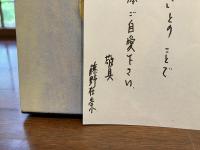 いとの ことで
ご自愛下さい。
敬具
藤野